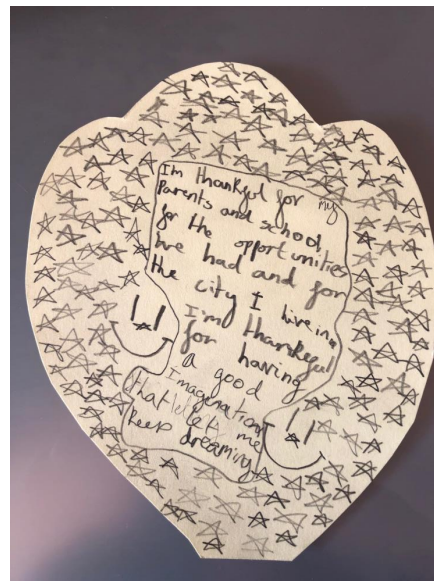 I'm thankful for my
Parents and school
for the opportunities
we had and for
the city I live in.
I'm thankful
for having
a good
Imagination
that let me
keep dreaming